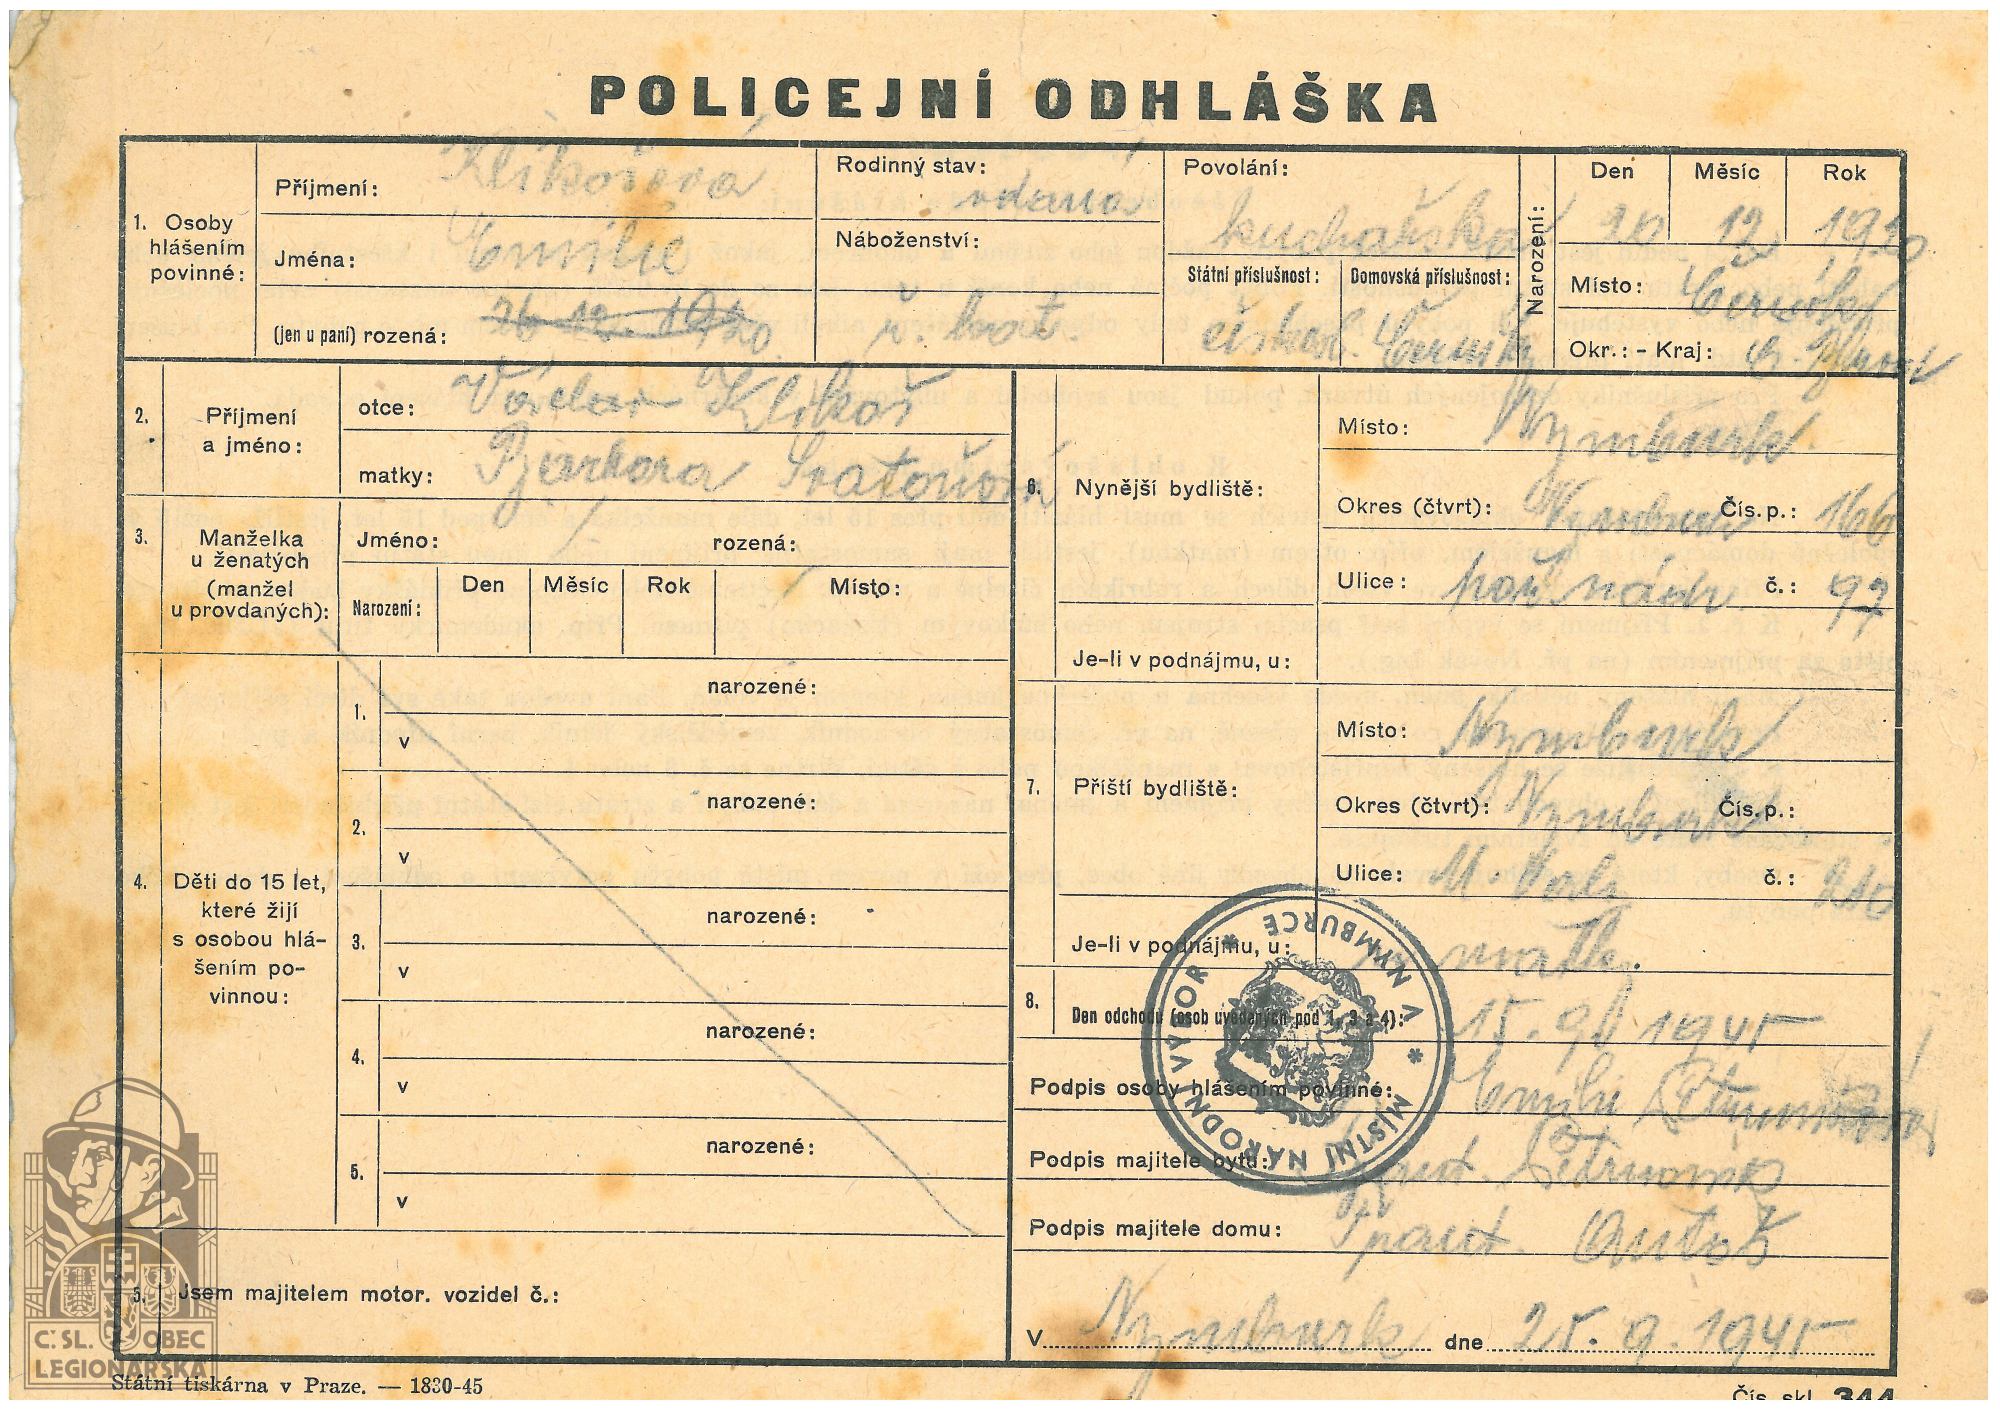 POLICEJNÍ ODHLÁŠKA
1. Osoby hlášením povinné:
Příjmení: Klikošová
Jména: Emilie
(jen u paní) rozená: 26 12. 1920.
Rodinný stav: vdaná
Náboženství:
Povolání: kuchařka
Státní příslušnost:
Domovská příslušnost:
Narození:
Den 20
Měsíc 12
Rok 1920
Místo:
Okr.: - Kraj:
2. Příjmení a jméno:
otce: Václav Klikoš
matky: Barbora Svatošová
3. Manželka u ženatých (manžel u provdaných):
Jméno: rozená:
Narození: Den Měsíc Rok Místo:
4. Děti do 15 let, které žijí s osobou hlášením povinnou:
1. narozené:
v
2. narozené:
v
3. narozené:
v
4. narozené:
v
5. narozené:
v
5. Jsem majitelem motor. vozidel č.:
6. Nynější bydliště:
Místo: Nymburk.
Okres (čtvrt): Nymburk Čís.p.: 166
Ulice: č.: 97
Je-li v podnájmu, u:
7. Příští bydliště:
Místo: Nymburk
Okres (čtvrt): Nymburk Čís.p.:
Ulice: č.: 210
Je-li v podnájmu, u:
8. Den odchodu (osob uvedených pod 1, 3 a 4): 15. 9. 1945
Podpis osoby hlášením povinné: Emilie
Podpis majitele bytu:
Podpis majitele domu:
V Nymburk dne 25. 9. 1945
MÍSTNÍ NÁRODNÍ VÝBOR * V NYMBURCE *
Č.SL. OBEC LEGIONÁŘSKÁ
Státní tiskárna v Praze. — 1830-45
Čís. skl. 344